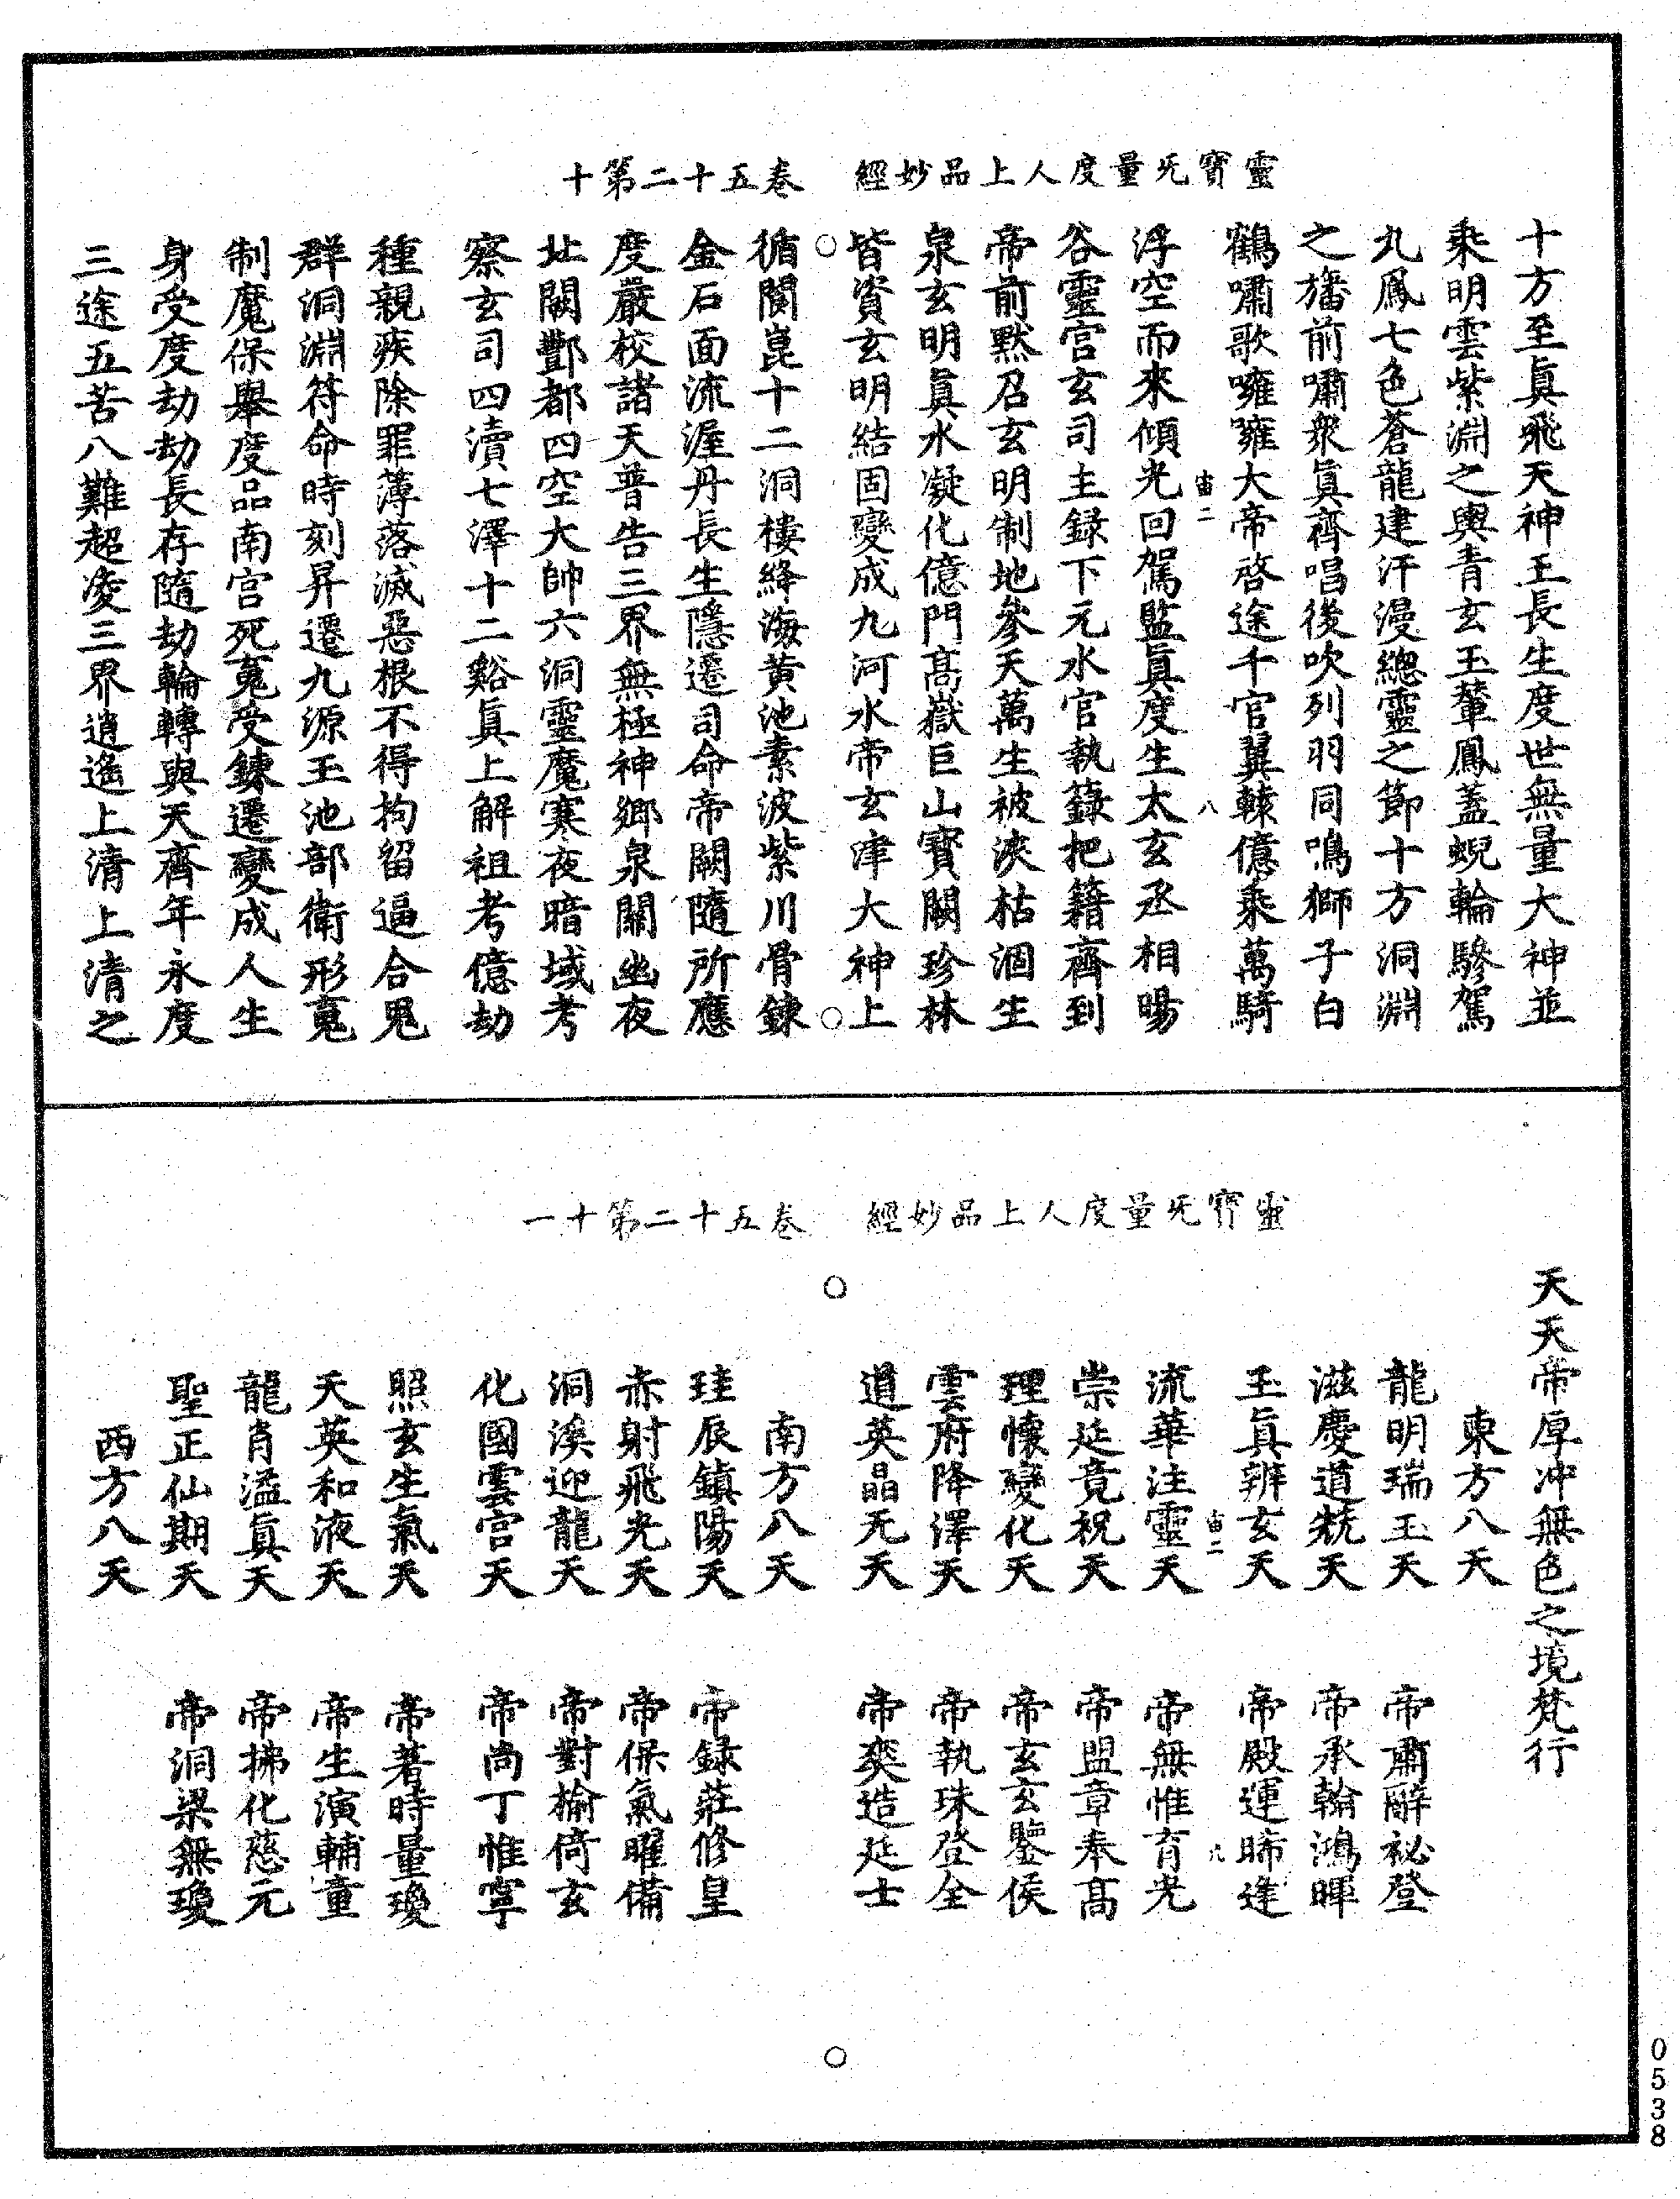 靈寶旡量度人上品妙經　卷五十二第十
十方至眞飛天神王長生度世無量大神並
乘明雲紫淵之輿青玄玉輦鳳蓋蜺輪驂駕
九鳳七色蒼龍建汗漫總靈之節十方洞淵
之旛前嘯衆眞齊唱後吹列羽同鳴獅子白
鶴嘯歌嗈雍大帝啓途千官翼轅億乘萬騎
宙二　八
浮空而來傾光回駕監眞度生太玄丞相暘
谷靈宮玄司主録下元水官執籙把籍齊到
帝前默召玄明制地參天萬生被浹枯涸生
泉玄明眞水凝化億門髙嶽巨山寶闕珍林
皆資玄明結固變成九河水帝玄津大神上
循閬崑十二洞樓絳海黄池素波紫川骨鍊
金石面流渥丹長生隱遷司命帝闕隨所應
度嚴校諸天普告三界無極神鄉泉關幽夜
北闕酆都四空大帥六洞靈魔寒夜暗域考
察玄司四瀆七澤十二谿眞上解祖考億劫
種親疾除罪薄落滅惡根不得拘留逼合鬼
群洞淵符命時刻昇遷九源玉池部衛形䰟
制魔保舉度品南宮死䰟受鍊遷變成人生
身受度劫劫長存隨劫輪轉與天齊年永度
三途五苦八難超凌三界逍遙上清上清之
靈寶旡量度人上品妙經　卷五十二第十一
天天帝厚冲無色之境梵行
東方八天
龍明瑞玉天　帝肅辭祕登
滋慶道兟天　帝承翰鴻暉
玉眞辨玄天　帝殿運晞逢
宙二　九
流華注靈天　帝無惟育光
崇延竟祝天　帝盟章奉髙
理懷變化天　帝玄玄鑒侯
雲府降澤天　帝執珠登全
道英晶无天　帝奕造延士
南方八天
珪辰鎮陽天　帝録莊修皇
赤射飛光天　帝保氣曜備
洞溪迎龍天　帝對榆倚玄
化國雲宮天　帝尚丁惟寧
照玄生氣天　帝著時量瓊
天英和液天　帝生演輔童
龍肖溢眞天　帝拂化慈元
聖正仙期天　帝洞梁無瓊
西方八天
0538